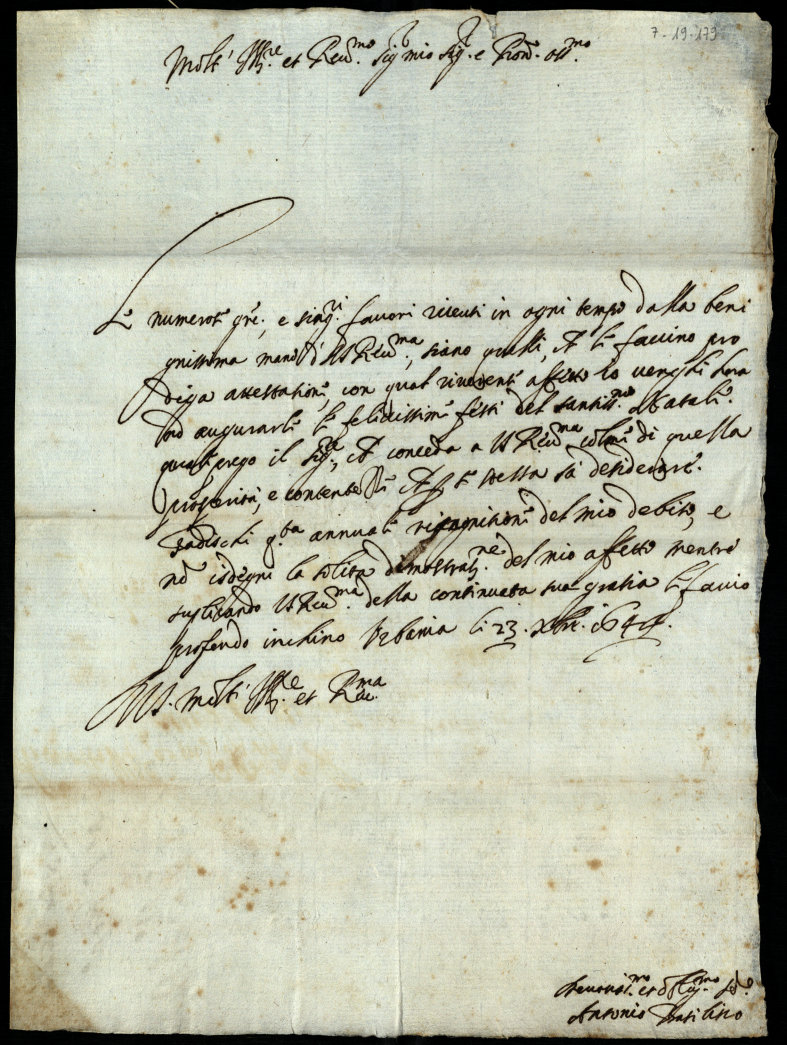 7-19-179
Molt' Ill.re et Reu.mo sig.r mio sig.r e Pron. oss.mo
Le numerose gre., e sing.ri fauori riceuti in ogni tempo dalla beni
gnissima mano di VS Reu.ma, siano quelli, che li faccino pro
diga attestatione, con qual riuerente affetto io uenghi hora
ad augurarli le felicissime feste del santiss.mo Natale.
quali prego il sig.re, che conceda a VS Reu.ma colme di quella
prosperità, e contentezze che stessa sà desiderare.
Gradischi q.ta annuale ricognitione del mio debito, e
nõ isdegni la solita demostrat.ne del mio affetto mentre
suplicando VS Reu.ma della continuata sua gratia li faccio
profondo inchino Vrbania li 23. Xbre.
Di VS. molto Ill.re et R.ma
Deuotiss.mo et Oblig.mo se.
Antonio